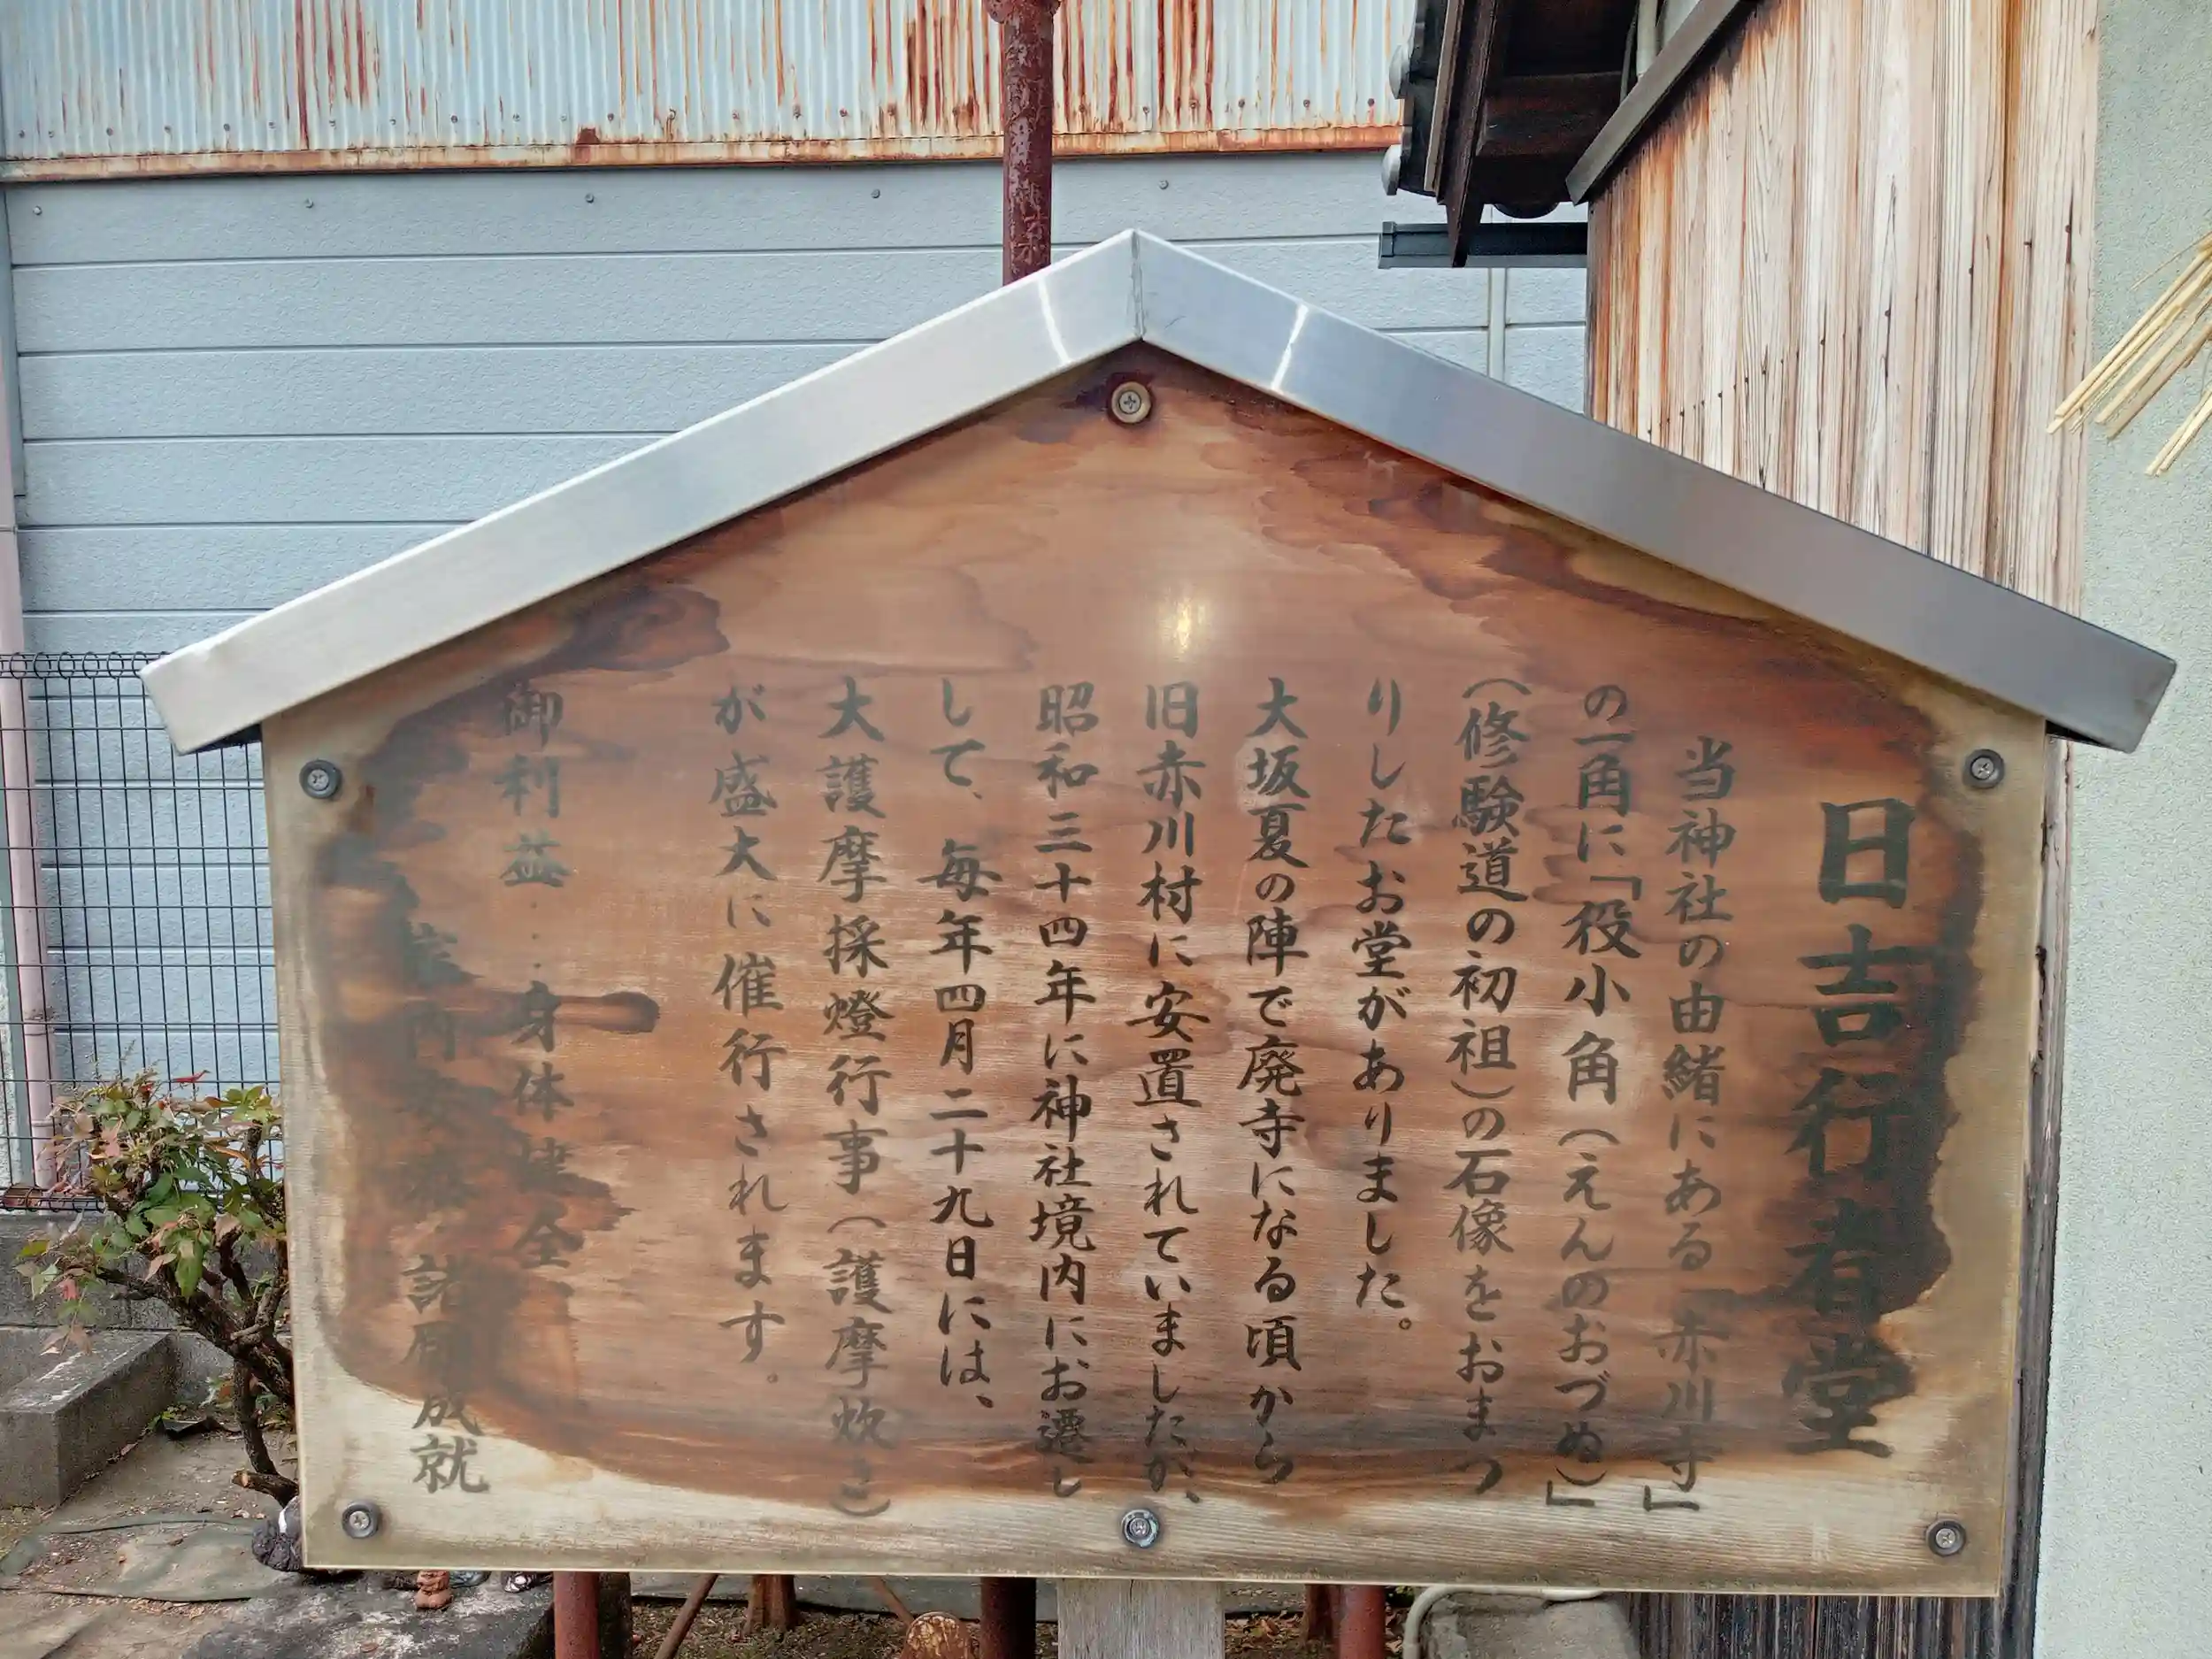 日吉行者堂
当神社の由緒にある「赤川寺」
の一角に「役小角（えんのおづぬ）」
（修験道の初祖）の石像をおまつ
りしたお堂がありました。
大坂夏の陣で廃寺になる頃から
旧赤川村に安置されていましたが、
昭和三十四年に神社境内にお遷し
して、毎年四月二十九日には、
大護摩採燈行事（護摩炊き）
が盛大に催行されます。
御利益…身体健全、
家内安全 諸願成就